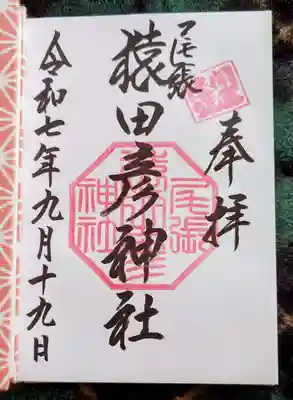 奉拝
尾張
猿田彦神社
尾張
神社
令和七年九月十九日